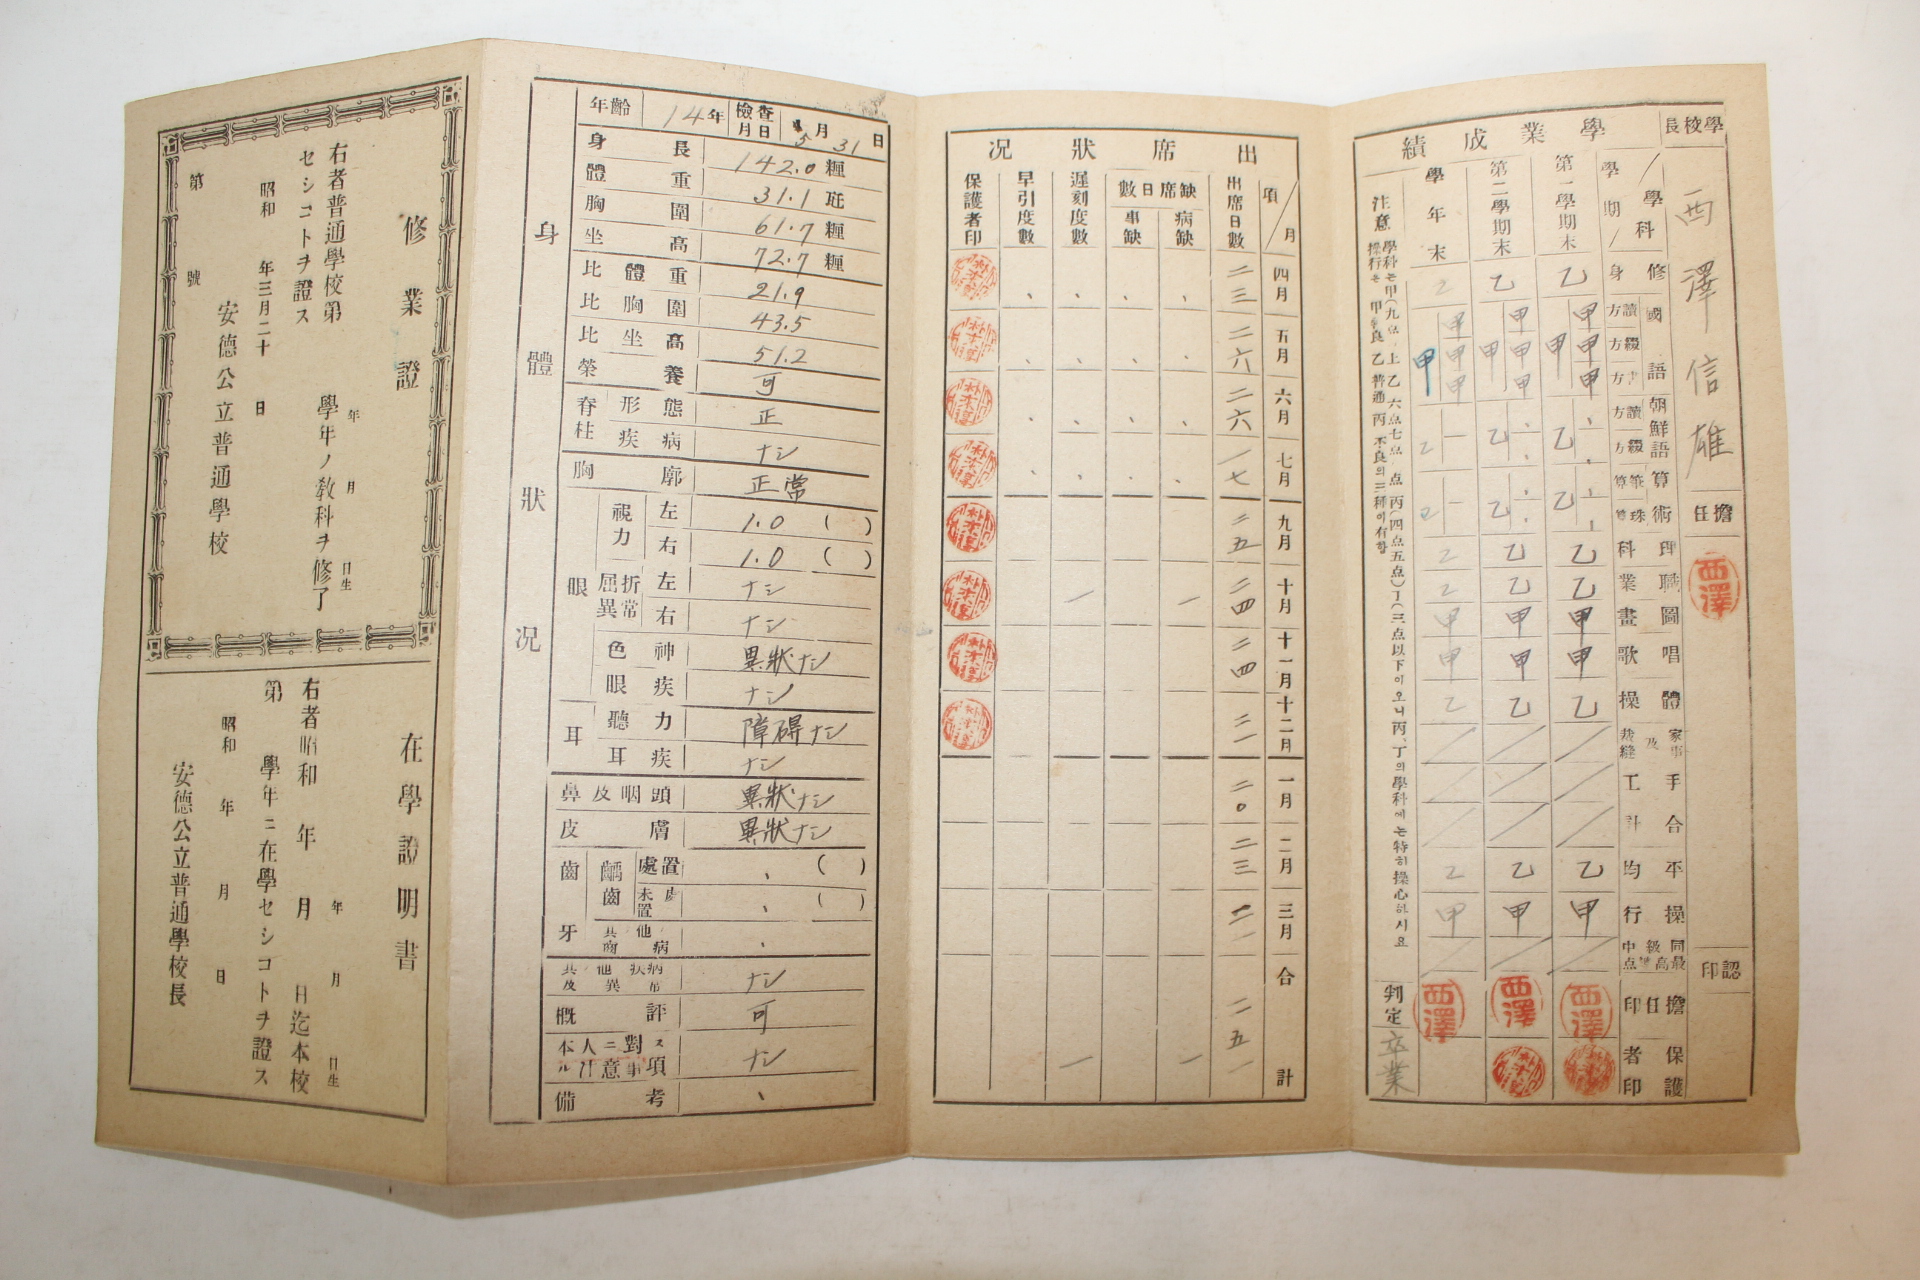 學校長
西澤信雄
擔任
西澤
認印
學業成績
學科
學期
修身
國語
讀方
綴方
書方
朝鮮語
讀方
綴方
算術
筆算
珠算
理科
職業
圖畫
唱歌
體操
家事及裁縫
手工
合計
平均
操行
擔任印
保護者印
第一學期末
乙
甲
甲
甲
甲
乙
乙
乙
乙
甲
甲
乙
乙
甲
西澤
第二學期末
乙
甲
甲
甲
甲
乙
乙
乙
乙
甲
甲
乙
乙
甲
西澤
學年末
乙
甲
甲
甲
甲
乙
乙
乙
乙
甲
甲
乙
乙
甲
西澤
判定
卒業
注意
出席狀況
項/月
四月
五月
六月
七月
九月
十月
十一月
十二月
一月
二月
三月
合計
出席日數
二三
二六
二六
一七
二五
二四
二四
二一
二〇
二三
二一
二五一
缺席日數
病缺
一
一
事缺
遲刻度數
一
一
早引度數
保護者印
身體狀況
年齡 14年 檢查月日 5月31日
身長 142.0 糎
體重 31.1 瓩
胸圍 61.7 糎
坐高 72.7 糎
比體重 21.9
比胸圍 43.5
比坐高 51.2
榮養 可
脊柱 形態 正
疾病 ナシ
胸廓 正常
眼 視力 左 1.0 ( )
右 1.0 ( )
屈折異常 左 ナシ
右 ナシ
色神 異狀ナシ
眼疾 ナシ
耳 聽力 障碍ナシ
耳疾 ナシ
鼻及咽頭 異狀ナシ
皮膚 異狀ナシ
齒牙 齲齒 處置 、 ( )
未處置 、 ( )
、
ナシ
概評 可
本人ニ對スル注意事項 ナシ
備考 、
修業證
右者普通學校第 學年ノ敎科ヲ修了
セシコトヲ證ス
年 月 日生
昭和 年三月二十 日
安德公立普通學校
第 號
在學證明書
年 月 日生
右者昭和 年 月 日迄本校
第 學年ニ在學セシコトヲ證ス
昭和 年 月 日
安德公立普通學校長